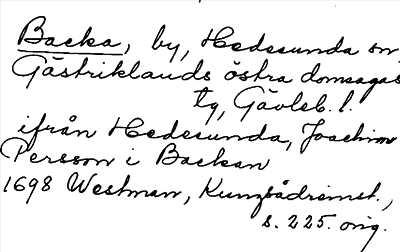 Backa, by, Hedesunda sn,
Gästriklands östra domsagas
tg, Gävleb. l.
ifrån Hedesunda, Joachim
Persson i Backan
1698 Westman, Kungsådremst.,
s. 225. orig.